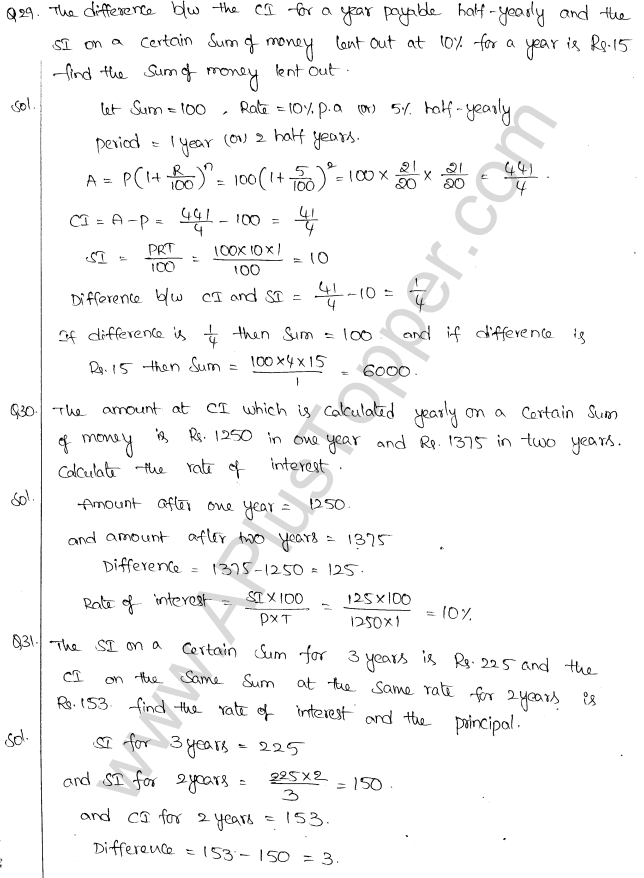 Q29. The difference b/w the CI for a year payable half-yearly and the
SI on a certain sum of money lent out at 10% for a year is Rs.15
find the sum of money lent out.
Sol. let Sum = 100, Rate = 10% p.a (or) 5% half-yearly
Period = 1 year (or) 2 half years.
A = P(1+R/100)^n = 100(1+5/100)^2 = 100 × 21/20 × 21/20 = 441/4.
CI = A-P = 441/4 - 100 = 41/4
SI = PRT/100 = 100×10×1/100 = 10
Difference b/w CI and SI = 41/4 - 10 = 1/4
If difference is 1/4 then Sum = 100 and if difference is
Rs.15 then Sum = 100×4×15/1 = 6000.
Q30. The amount at CI which is calculated yearly on a certain sum
of money is Rs. 1250 in one year and Rs. 1375 in two years.
Calculate the rate of interest.
Sol. Amount after one year = 1250.
and amount after two years = 1375
Difference = 1375-1250 = 125.
Rate of interest = SI×100/P×T = 125×100/1250×1 = 10%
Q31. The SI on a certain sum for 3 years is Rs. 225 and the
CI on the same sum at the same rate for 2 years is
Rs.153. find the rate of interest and the principal.
Sol. SI for 3 years = 225
and SI for 2 years = 225×2/3 = 150.
and CI for 2 years = 153.
Difference = 153 - 150 = 3.
www.APlusTopper.com